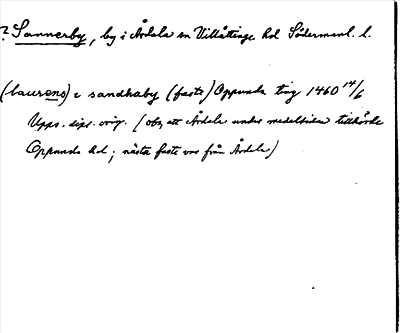 ? Sannerby, by i Årdala sn Villåttinge hd Södermanl. l.
(laurens) i sandhaby (faste) Oppunda ting 1460 14/6
Upps. dipl. orig. (obs, att Årdala under medeltiden tillhörde
Oppunda hd; nästa faste var från Årdala)